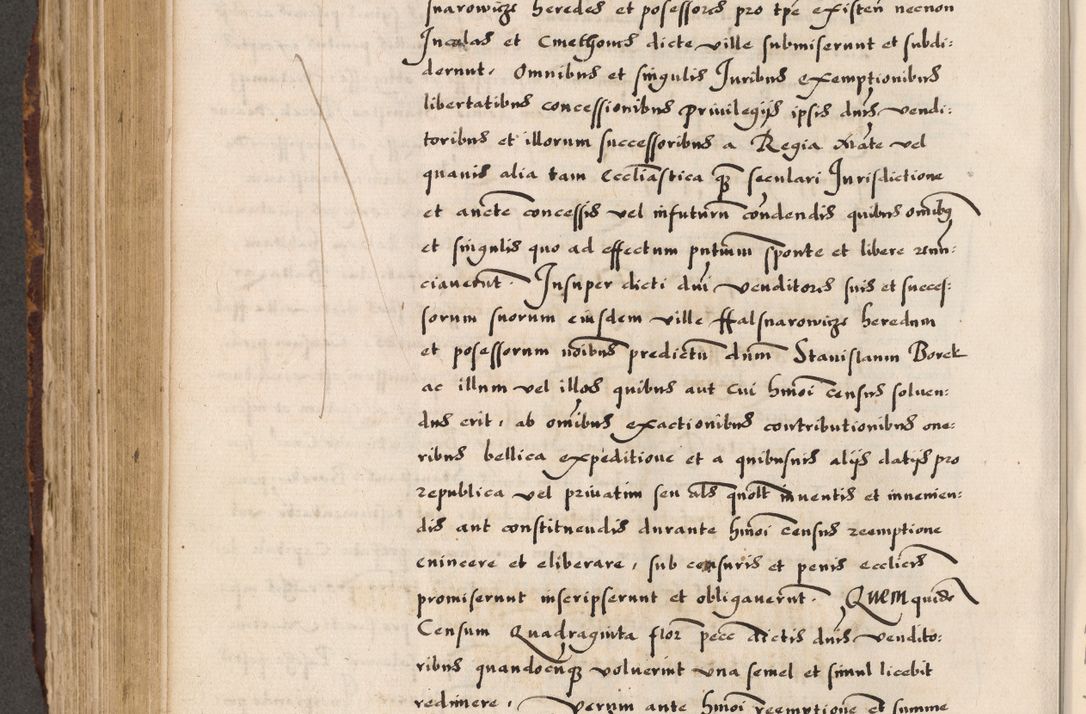 snarowicze heredes et posessores pro tpe existen necnon
Incolas et Cmethones dicte ville submiserunt et subdi:
derunt. Omnibus et singulis Juribus exemptionibus
libertatibus concessionibus privilegijs ipsis dnis vendi:
toribus et illorum successoribus a Regia Mate vel
quavis alia tam Eccliastica qz seculari Jurisdictione
et ancte concessis vel infuturu condendis quibus omibus
et singulis quo ad effectum pntium sponte et libere renu:
ciaverut. Insuper dicti dni venditores suis et succes:
sorum suorum eiusdem ville ffalsnarowicze heredum
et posessorum noibus predictu dnum Stanislaum Borek
ac illum vel illos quibus aut cui hmoi census solven:
dus erit, ab omibus exactionibus contributionibus one:
ribus bellica expeditione et a quibusuis alijs datijs pro
republica vel privatim seu als quolt inventis et invenien:
dis aut constituendis durante hmoi census reemptione
evincere et eliberare, sub censuris et penis ecclicis
promiserunt inscripserunt et obligaverut. Quem quide
Censum Quadraginta flor pecc dictis dnis vendito:
ribus quandocuqz voluerint una semel et simul licebit
redimere, Verum ante hmoi reemptione et summe